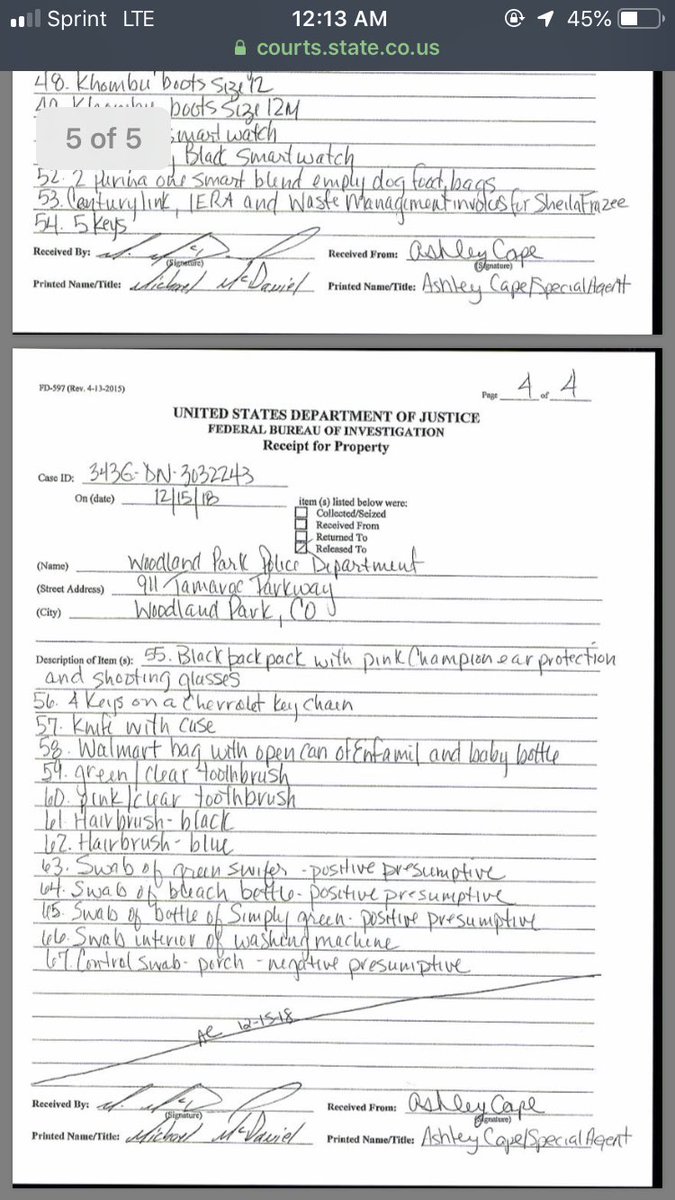 Sprint LTE 12:13 AM 45%
courts.state.co.us
48. Khombu boots Size 12
boots Size 12M
5 of 5
smart watch
Black Smart watch
52. 2 purina one smart blend empty dog food bags
53. Century link, IERA and Waste Management invoices for Sheila Frazee
54. 5 keys
Received By: (Signature) Received From: Ashley Cape (Signature)
Printed Name/Title: Michael McDaniel Printed Name/Title: Ashley Cape/Special Agent
FD-597 (Rev. 4-13-2015) Page 4 of 4
UNITED STATES DEPARTMENT OF JUSTICE
FEDERAL BUREAU OF INVESTIGATION
Receipt for Property
Case ID: 343G-DN-3032243
On (date) 12/15/18
item (s) listed below were:
Collected/Seized
Received From
Returned To
Released To
(Name) Woodland Park Police Department
(Street Address) 911 Tamarac Parkway
(City) Woodland Park, CO
Description of Item (s): 55. Black back pack with pink Champion ear protection
and shooting glasses
56. 4 Keys on a Chevrolet key chain
57. Knife with case
58. Walmart bag with open can of Enfamil and baby bottle
59. green/clear toothbrush
60. pink/clear toothbrush
61. Hairbrush - black
62. Hairbrush - blue
63. Swab of green swifer - positive presumptive
64. Swab of bleach bottle - positive presumptive
65. Swab of bottle of Simply green - positive presumptive
66. Swab interior of washing machine
67. Control swab - porch - negative presumptive
AC 12-15-18
Received By: (Signature) Received From: Ashley Cape (Signature)
Printed Name/Title: Michael McDaniel Printed Name/Title: Ashley Cape/Special Agent